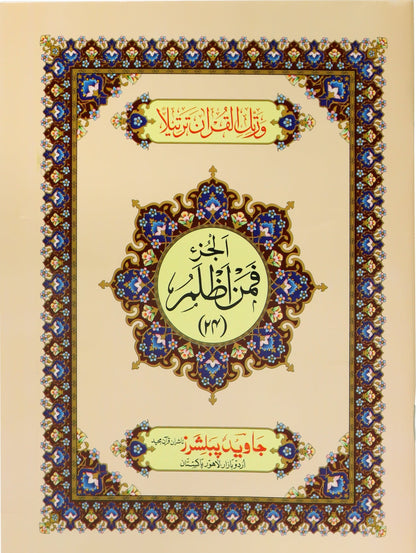 ورتل القرآن ترتیلا
الجزء
فمن اظلم
(۲۴)
جاوید پبلشرز ناشران قرآن مجید
اردو بازار لاہور پاکستان